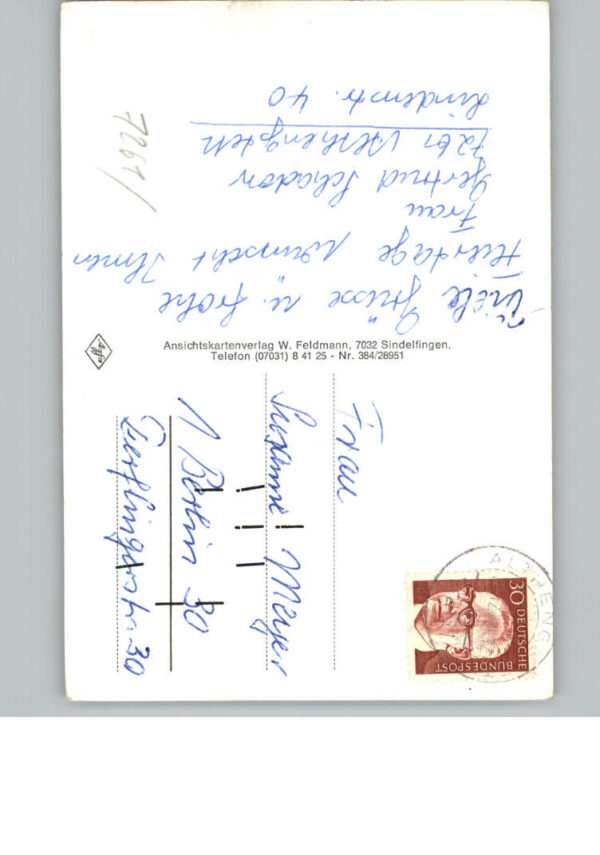 Viele Grüsse u. frohe
Feiertage wünscht Ihnen
Frau
Gertrud Schador
7261 Althengstett
Lindenstr. 40
7261/
Ansichtskartenverlag W. Feldmann, 7032 Sindelfingen,
Telefon (07031) 8 41 25 - Nr. 384/28951
Agfa
Frau
Susanne Meyer
1 Berlin 30
Derflingerstr. 30
30 DEUTSCHE
BUNDESPOST
ALTHENGST